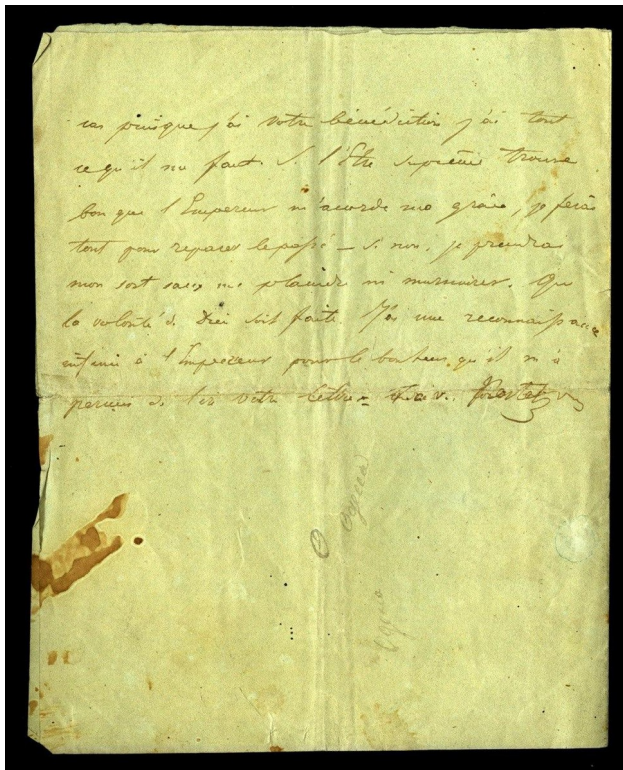 cas puisque j'ai votre bénédiction j'ai tout
ce qu'il me faut. Si l'Etre suprême trouve
bon que l'Empereur m'acorde ma grâce, je ferai
tout pour reparer le passé – si non, je prendrai
mon sort sans me plaindre ni murmurer. Que
la volonté de Dieu soit faite. J'ai une reconnaissance
infinie à l'Empereur pour le bonheur qu'il m'a
permis de lire votre lettre –